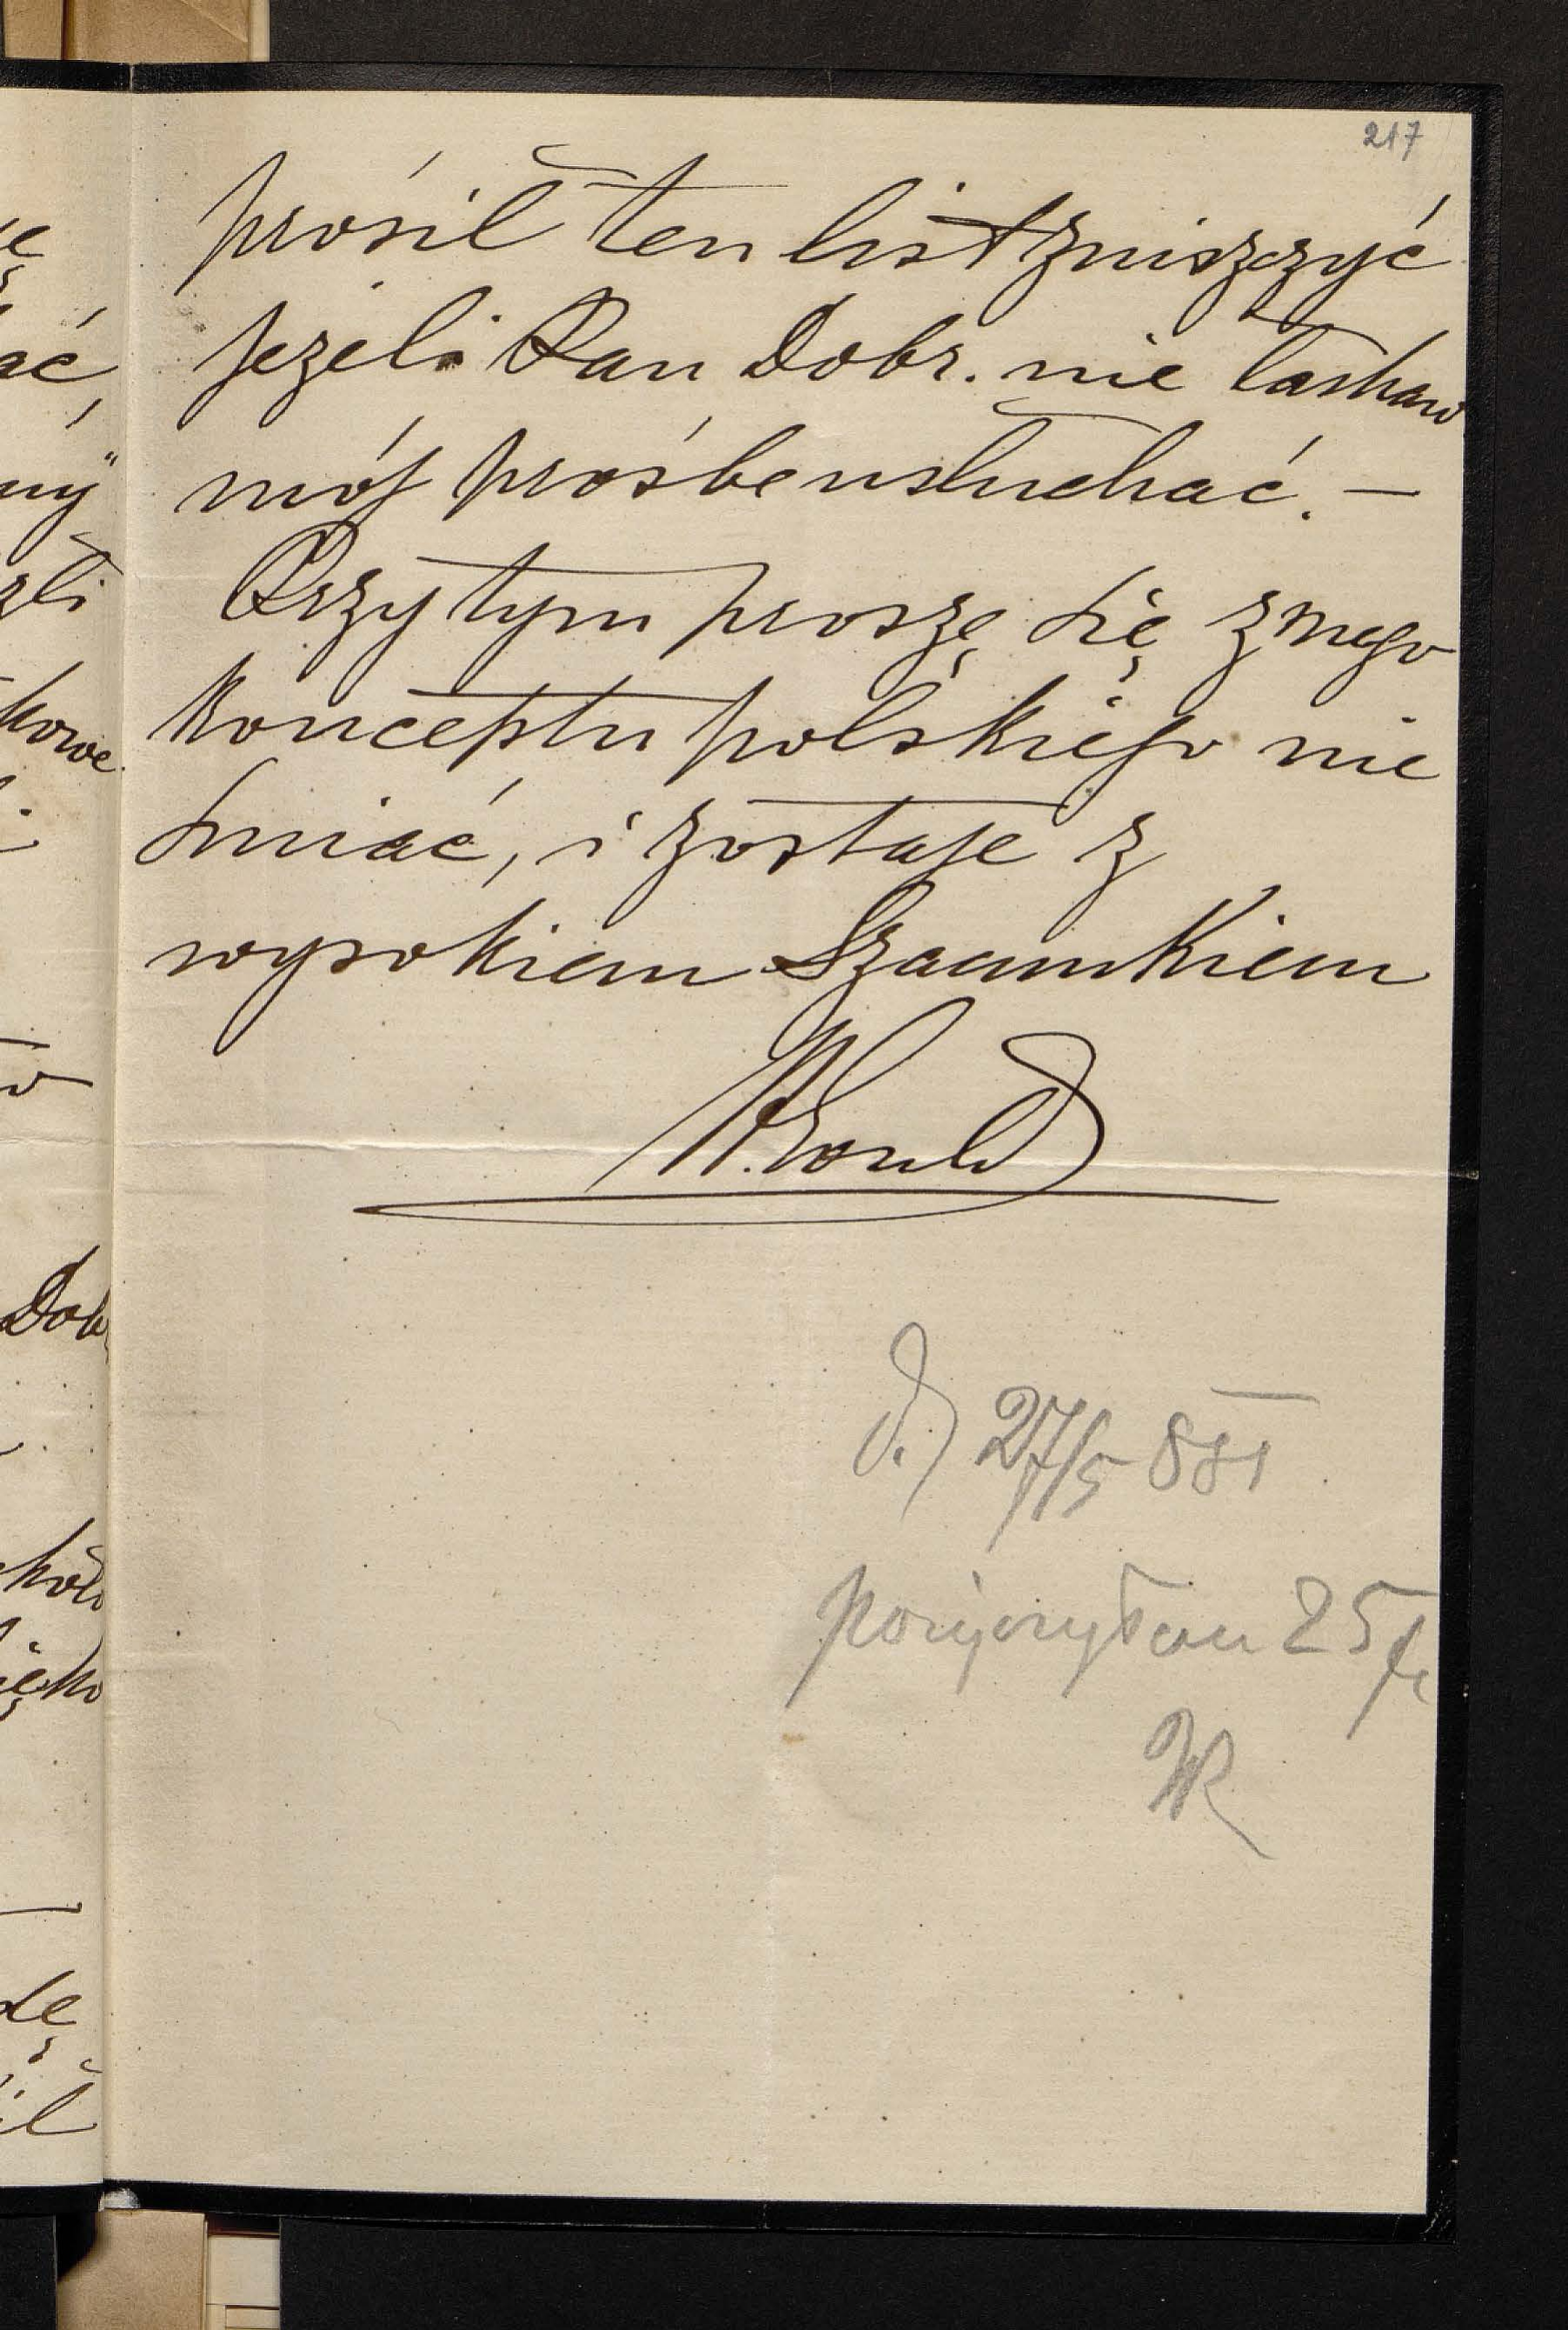 217
prosił ten list zniszczyć
jeżeli Pan Dobr. nie łaskaw
mój prośbe usłuchać. —
Przy tym proszę się z mego
konceptu polskiego nie
śmiać, i zostaje z
wysokiem Szacunkiem
d.) 27/5 881
pożyczyłem 25 fr
WK